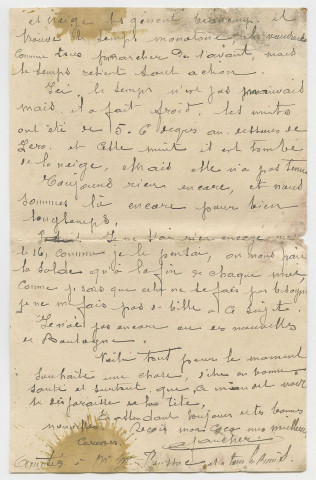 et neige les gênent beaucoup et
trouve le temps monotone,
comme tous marcher de l'avant, mais
le temps retient tout action.
Ici le temps n'est pas mauvais
mais il a fait froid, les nuits
ont été de 5. 6 degrés au dessous de
Zero. et cette nuit il est tombé
de la neige, Mais elle n'a pas tenue
Toujours rien encore, et nous
sommes là encore pour bien
longtemps,
Je ne t'ai rien envoyé
le 16, comme je le pensai, on nous paie
la solde qu'à la fin de chaque mois
comme je sais que cela ne te fais pas besoin
je ne m'fais pas de bile à ce sujet.
Je n'ai pas encore eu des nouvelles
de Boulogne.
Voilà tout pour le moment
souhaite une chose, d'être en bonne
santé et surtout que ce mien de noir
se disparaîtra de ta tête,
En attendant toujours de tes bonnes
nouvelles. Reçois mon Coco mes meilleures
Caresses.
Gaucher
Amitiés à Mr Mme et à tous les amis.